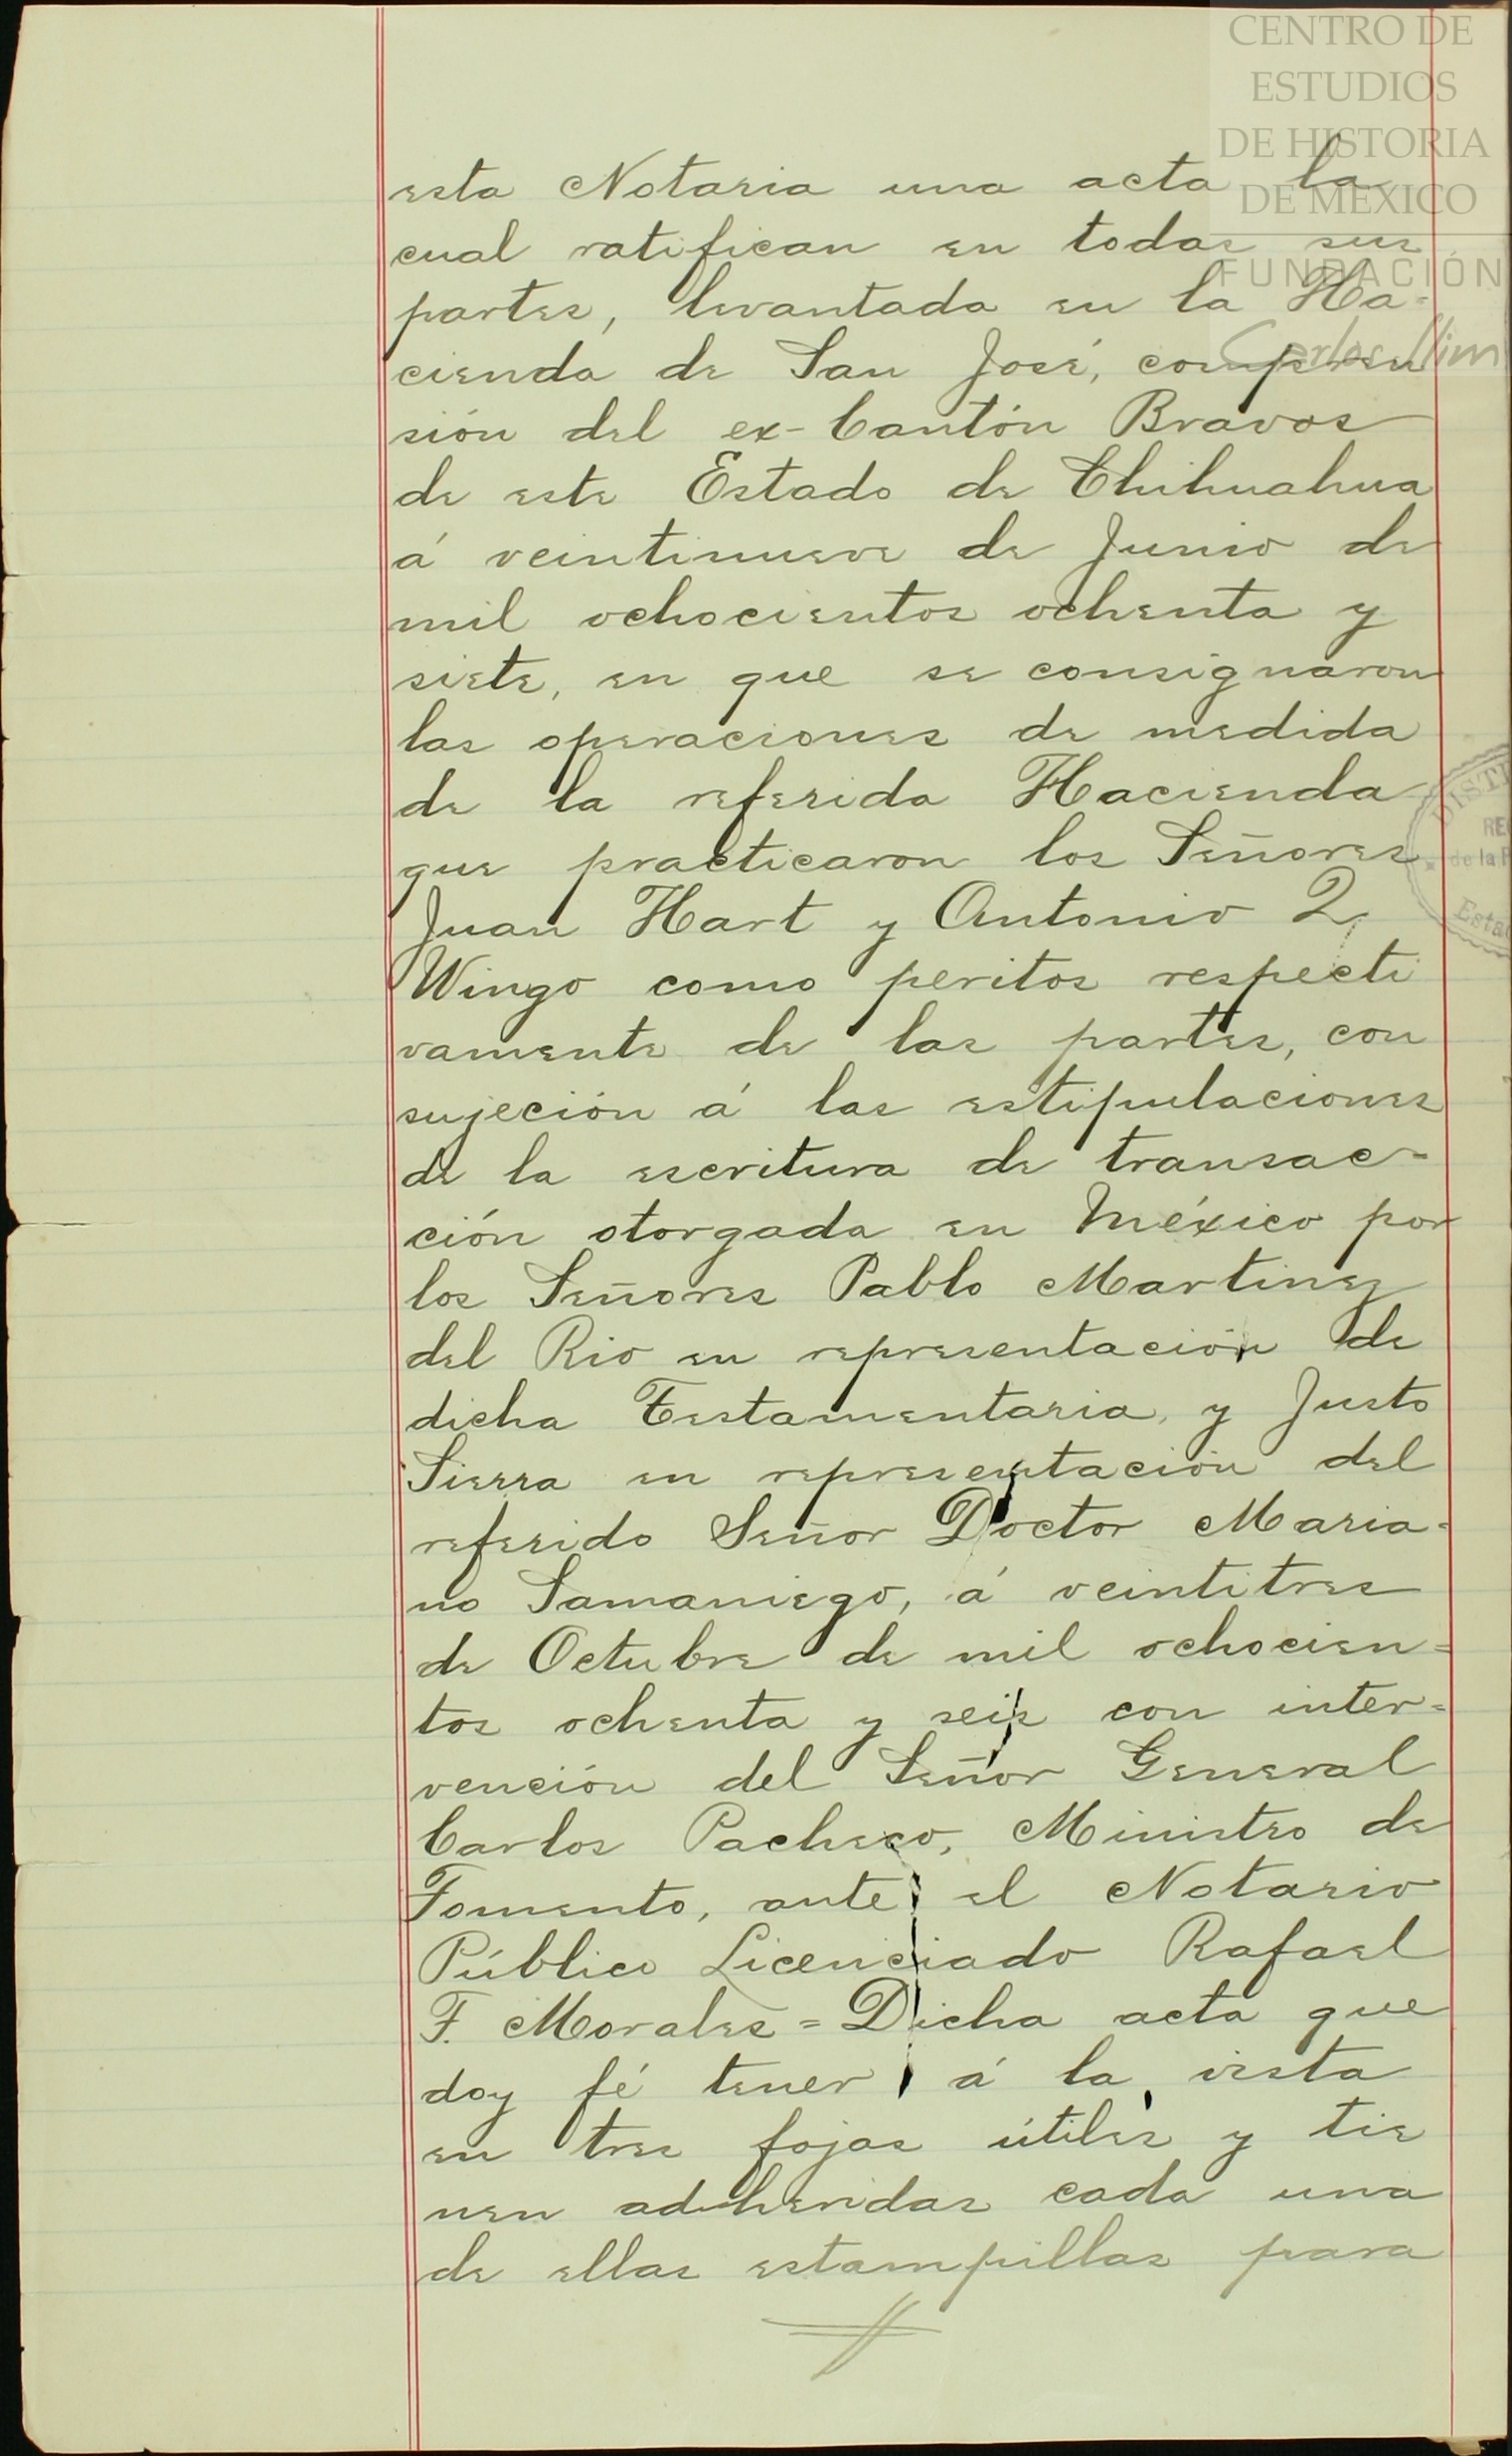 CENTRO DE
ESTUDIOS
DE HISTORIA
DE MEXICO
FUNDACIÓN
Carlos Slim
esta Notaria una acta la
cual ratifican en todas sus
partes, levantada en la Ha=
cienda de San José, compren
sión del ex-Cantón Bravos
de este Estado de Chihuahua
á veintinueve de Junio de
mil ochocientos ochenta y
siete, en que se consignaron
las operaciones de medida
de la referida Hacienda
que practicaron los Señores
Juan Hart y Antonio Q.
Wingo como peritos respecti
vamente de las partes, con
sujeción á las estipulaciones
de la escritura de transac=
ción otorgada en México por
los Señores Pablo Martinez
del Rio en representación de
dicha Testamentaria, y Justo
Sierra en representación del
referido Señor Doctor Maria=
no Samaniego, á veintitres
de Octubre de mil ochocien=
tos ochenta y seis con inter=
vención del Señor General
Carlos Pacheco, Ministro de
Fomento, ante el Notario
Público Licenciado Rafael
F. Morales = Dicha acta que
doy fé tener á la vista
en tres fojas útiles y tie
nen adheridas cada una
de ellas estampillas para